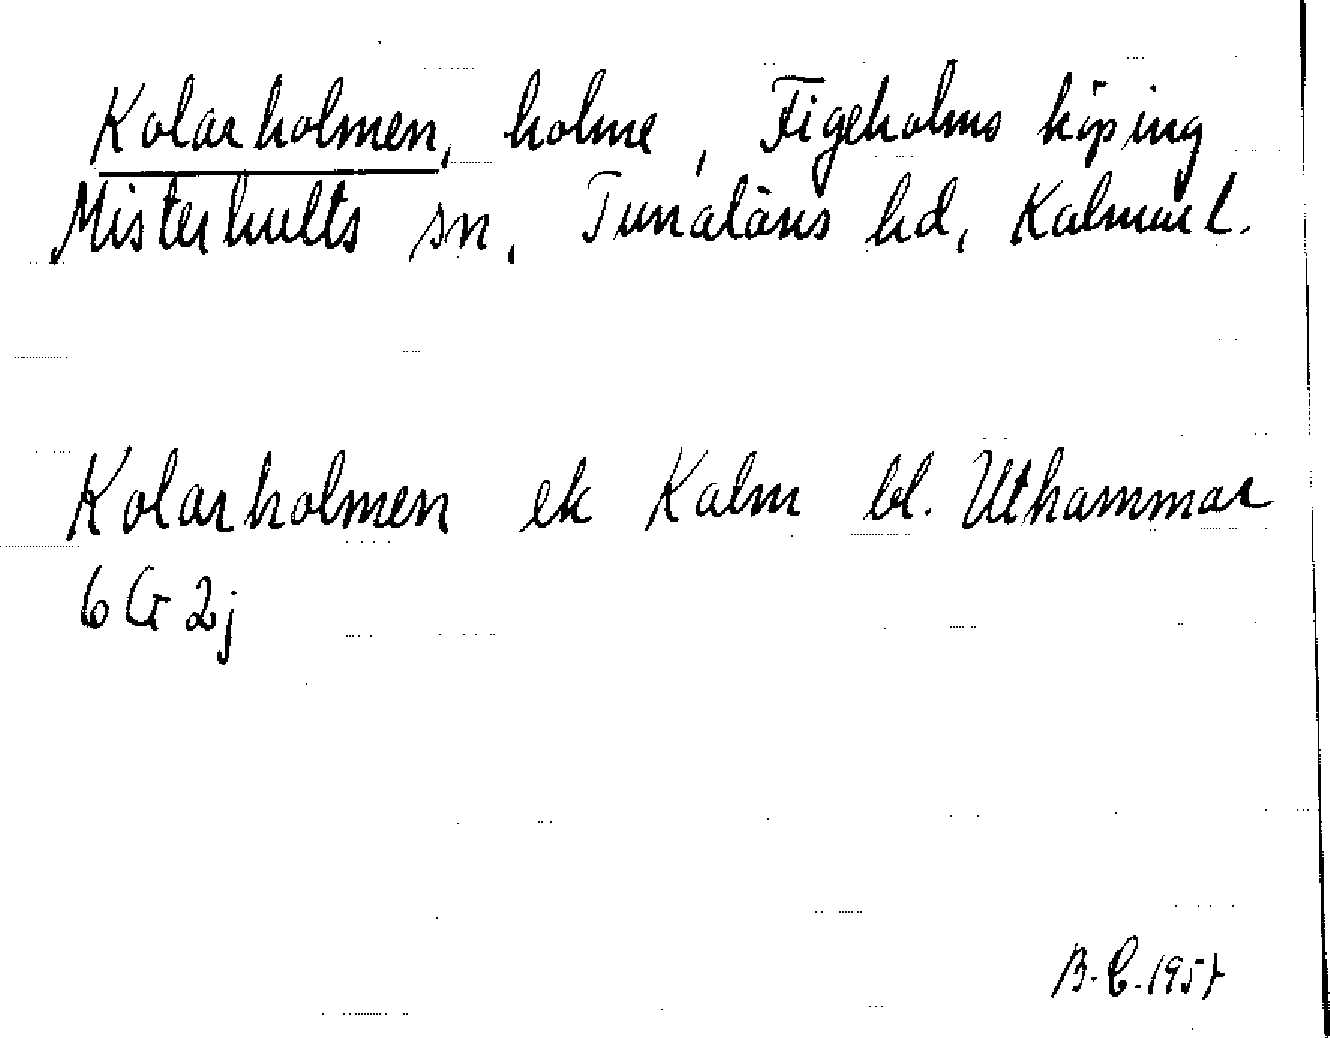 Kolarholmen, holme, Figeholms köping
Misterhults sn, Tunaläns hd, Kalmar l.
Kolarholmen ek Kalm bl. Uthammar
6 G 2j
B.C. 1957